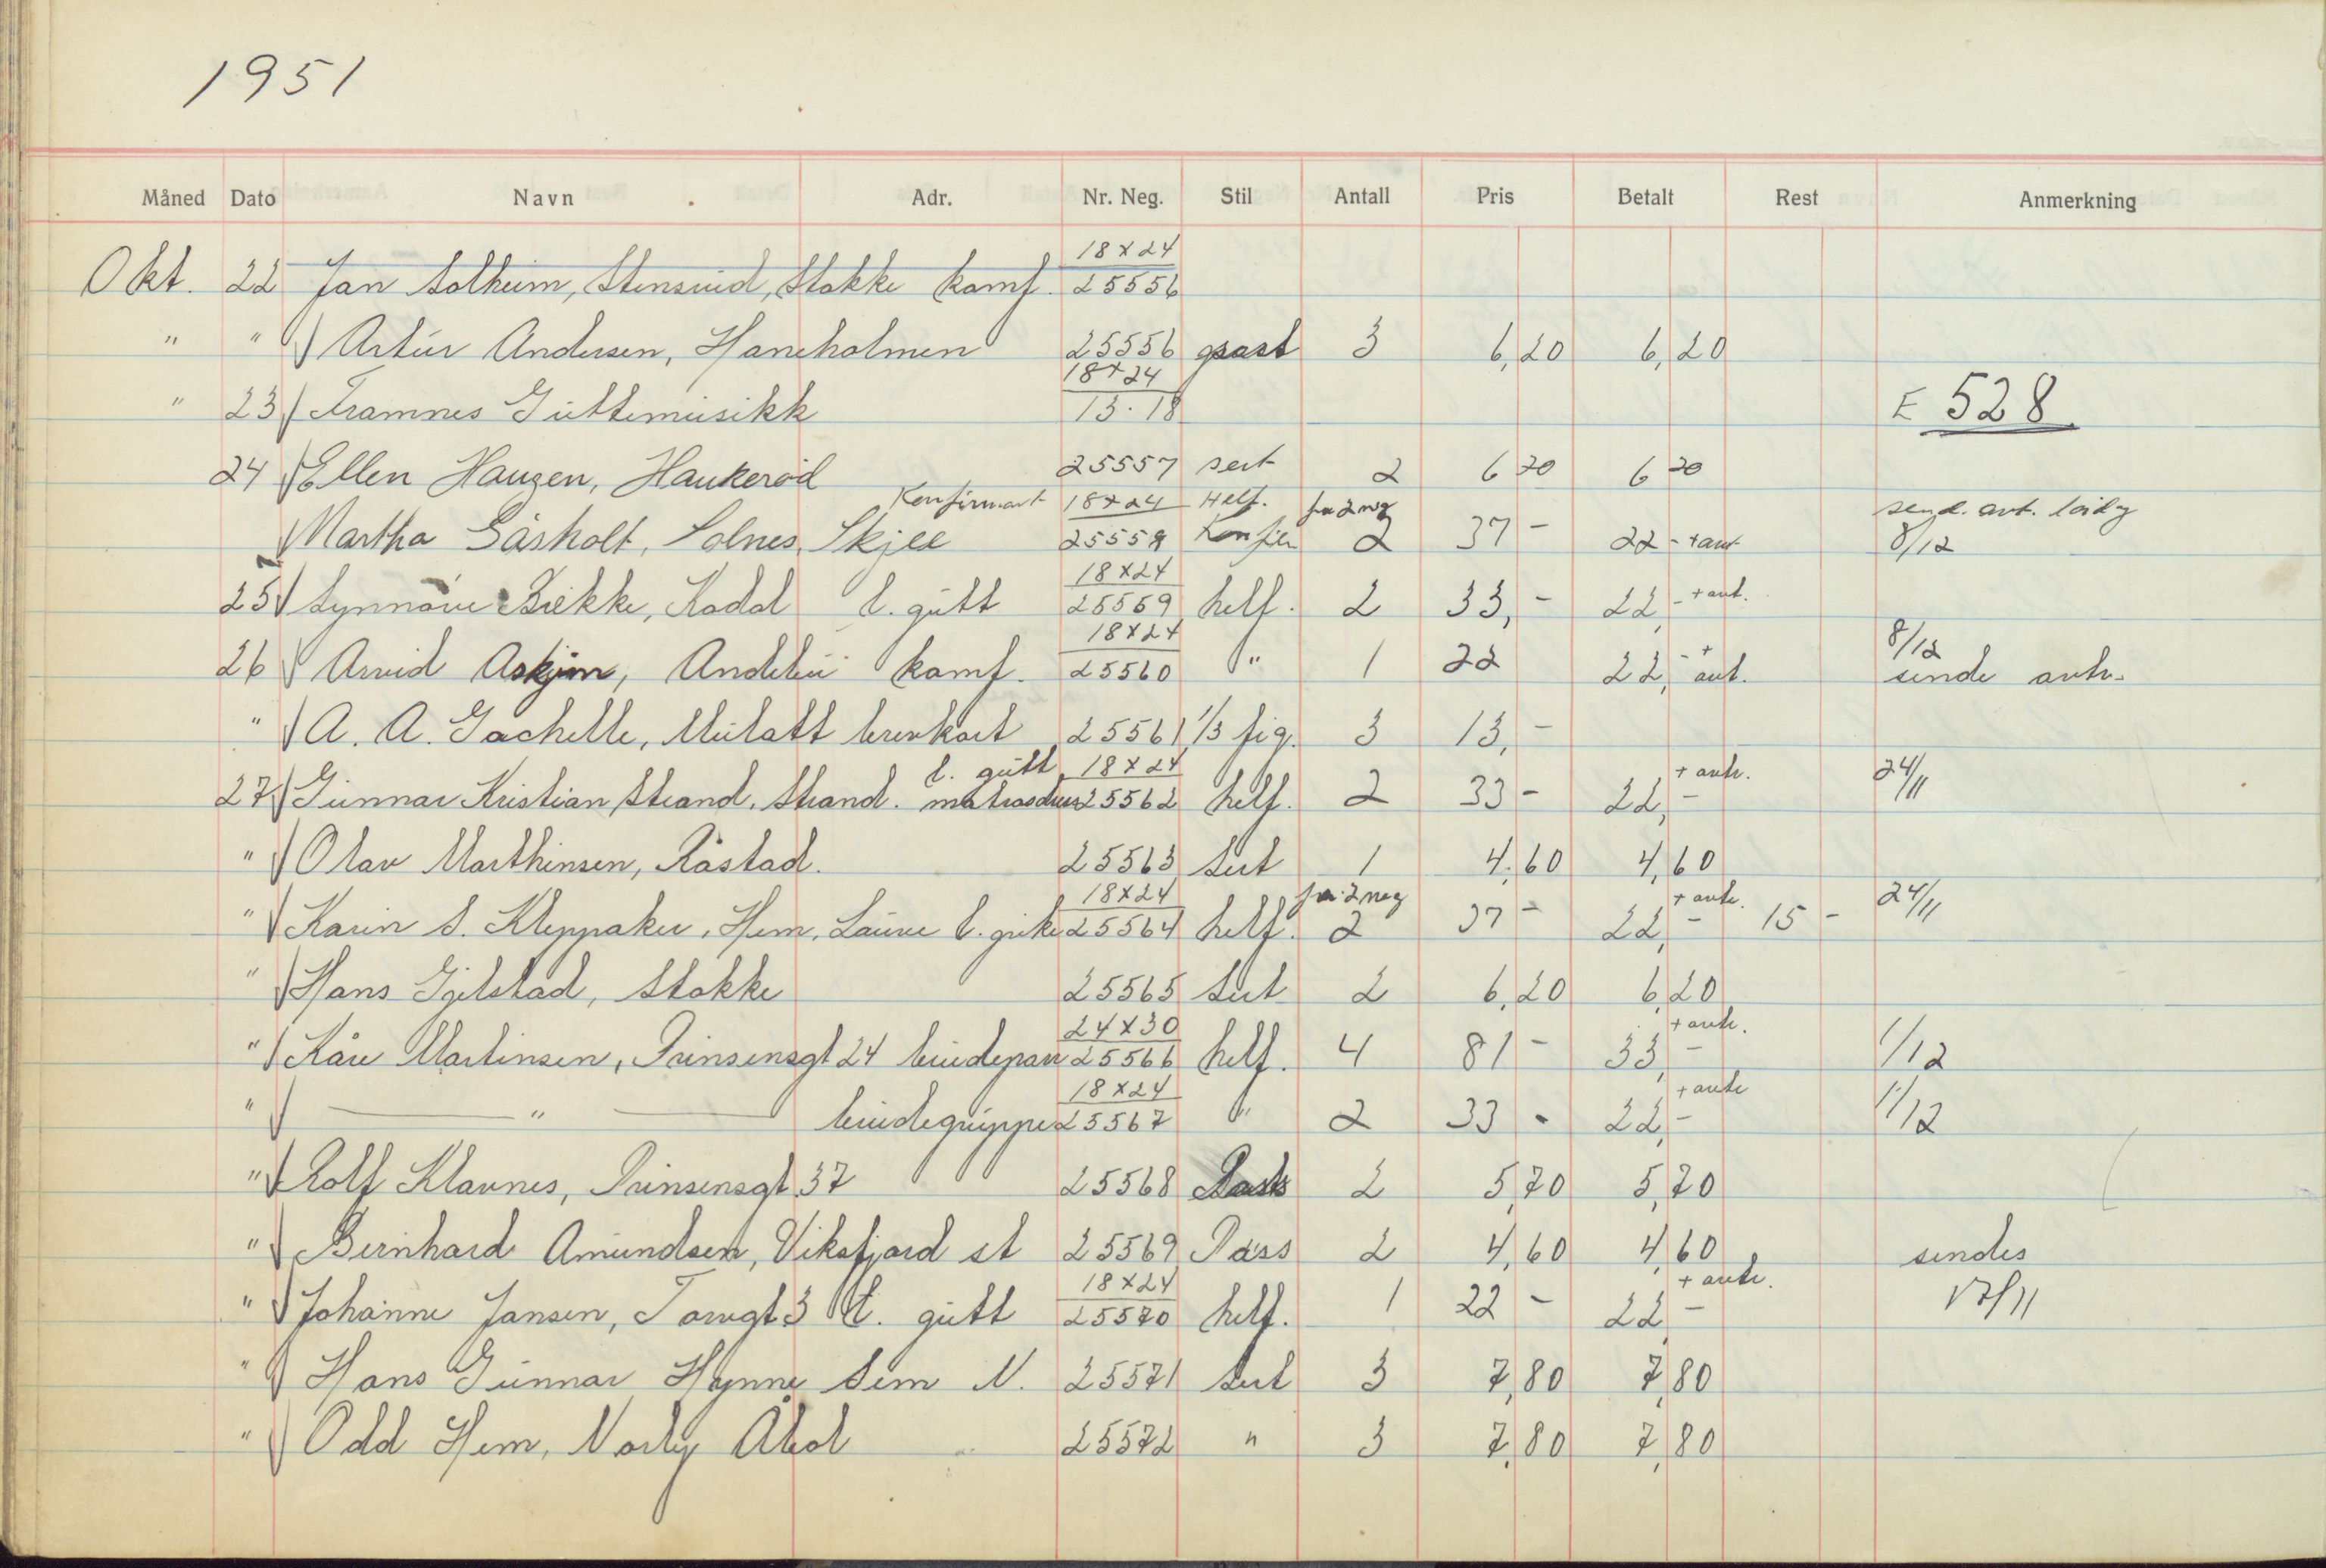 1951
Måned Dato Navn Adr. Nr. Neg. Stil Antall Pris Betalt Rest Anmerkning
18x24
Okt. 22 Jan Solheim, Stensrud, Stokke konf. 25556
" " Artur Andersen, Haneholmen 25556 3 6,20 6,20
18x24
" 23 Framnes Guttemusikk 13.18 E 528
24 Ellen Hauzen, Haukerød 25557 sert 2 6 20 6 20
Konfirmant 18x24 Helf. fra 2 neg send. ant. lørdg
Martha Gåsholt, Solnes, Skjee 25558 Konfir 2 37 - 22 - + ant 8/12
18x24
25 Synnøve Bekke, Kodal l. gutt 25559 helf. 2 33,- 22,- + ant.
18x24 8/12
26 Arvid Askjem, Andebu konf. 25560 " 1 22 22,- + ant. sende antr.
" A. A. Gachelle, Mulatt brevkort 25561 1/3 fig. 3 13,-
l. gutt 18x24 + antr. 24/11
27 Gunnar Kristian Strand, Strand. matrosdres 25562 helf. 2 33 - 22,-
" Olav Marthinsen, Råstad. 25563 sert 1 4,60 4,60
18x24 fra 2 neg + antr. 24/11
" Karin S. Kleppaker, Hem, Lauve l. pike 25564 helf. 2 37 - 22,- 15 -
" Hans Gjelstad, Stokke 25565 sert 2 6,20 6,20
24x30 + antr.
" Kåre Martinsen, Prinsensgt 24 brudepar 25566 helf. 4 81 - 33,- 1/12
18x24 + antr
" " brudegruppe 25567 " 2 33 - 22,- 1/12
" Rolf Klavnes, Prinsensgt. 37 25568 Pass 2 5,70 5,70
" Bernhard Amundsen, Viksfjord st 25569 Pass 2 4,60 4,60 sendes
18x24 + antr.
" Johanne Jansen, Torvgt 3 l. gutt 25570 helf. 1 22 - 22,- 17/11
" Hans Gunnar Hynne Sem N. 25571 sert 3 7,80 7,80
" Odd Hem, Norby Åbol 25572 " 3 7,80 7,80